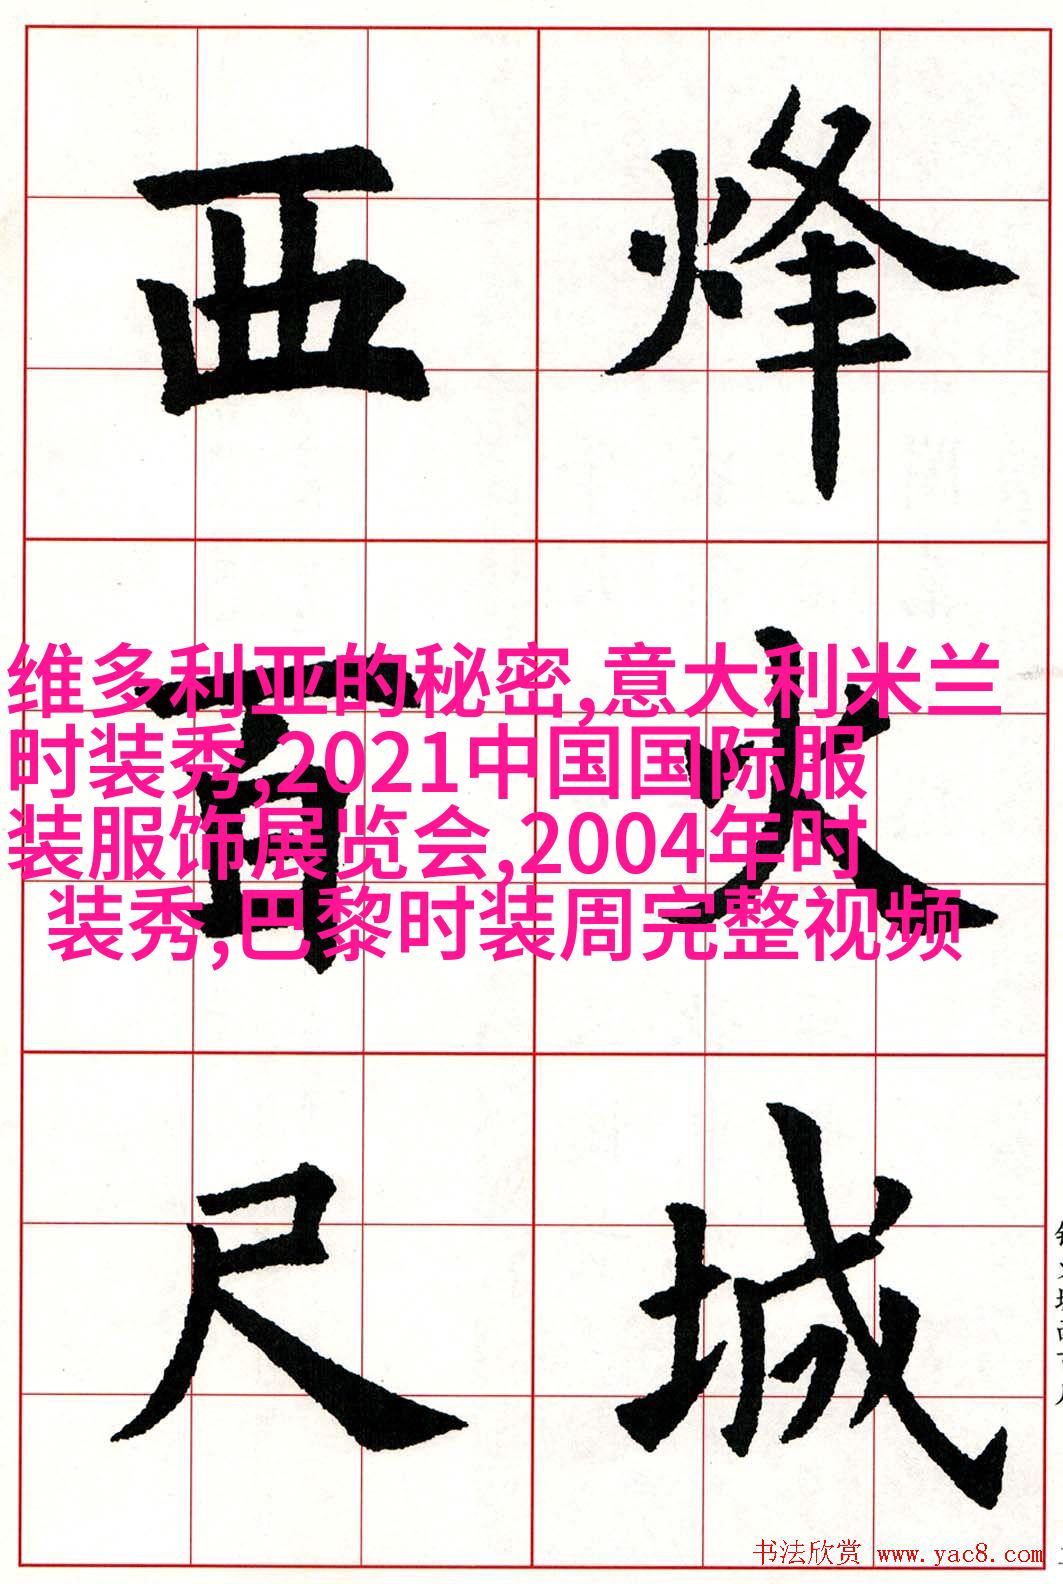 烽火城
西百尺
维多利亚的秘密,意大利米兰
时装秀,2021中国国际服
装服饰展览会,2004年时
装秀,巴黎时装周完整视频
书法欣赏 www.yac8.com